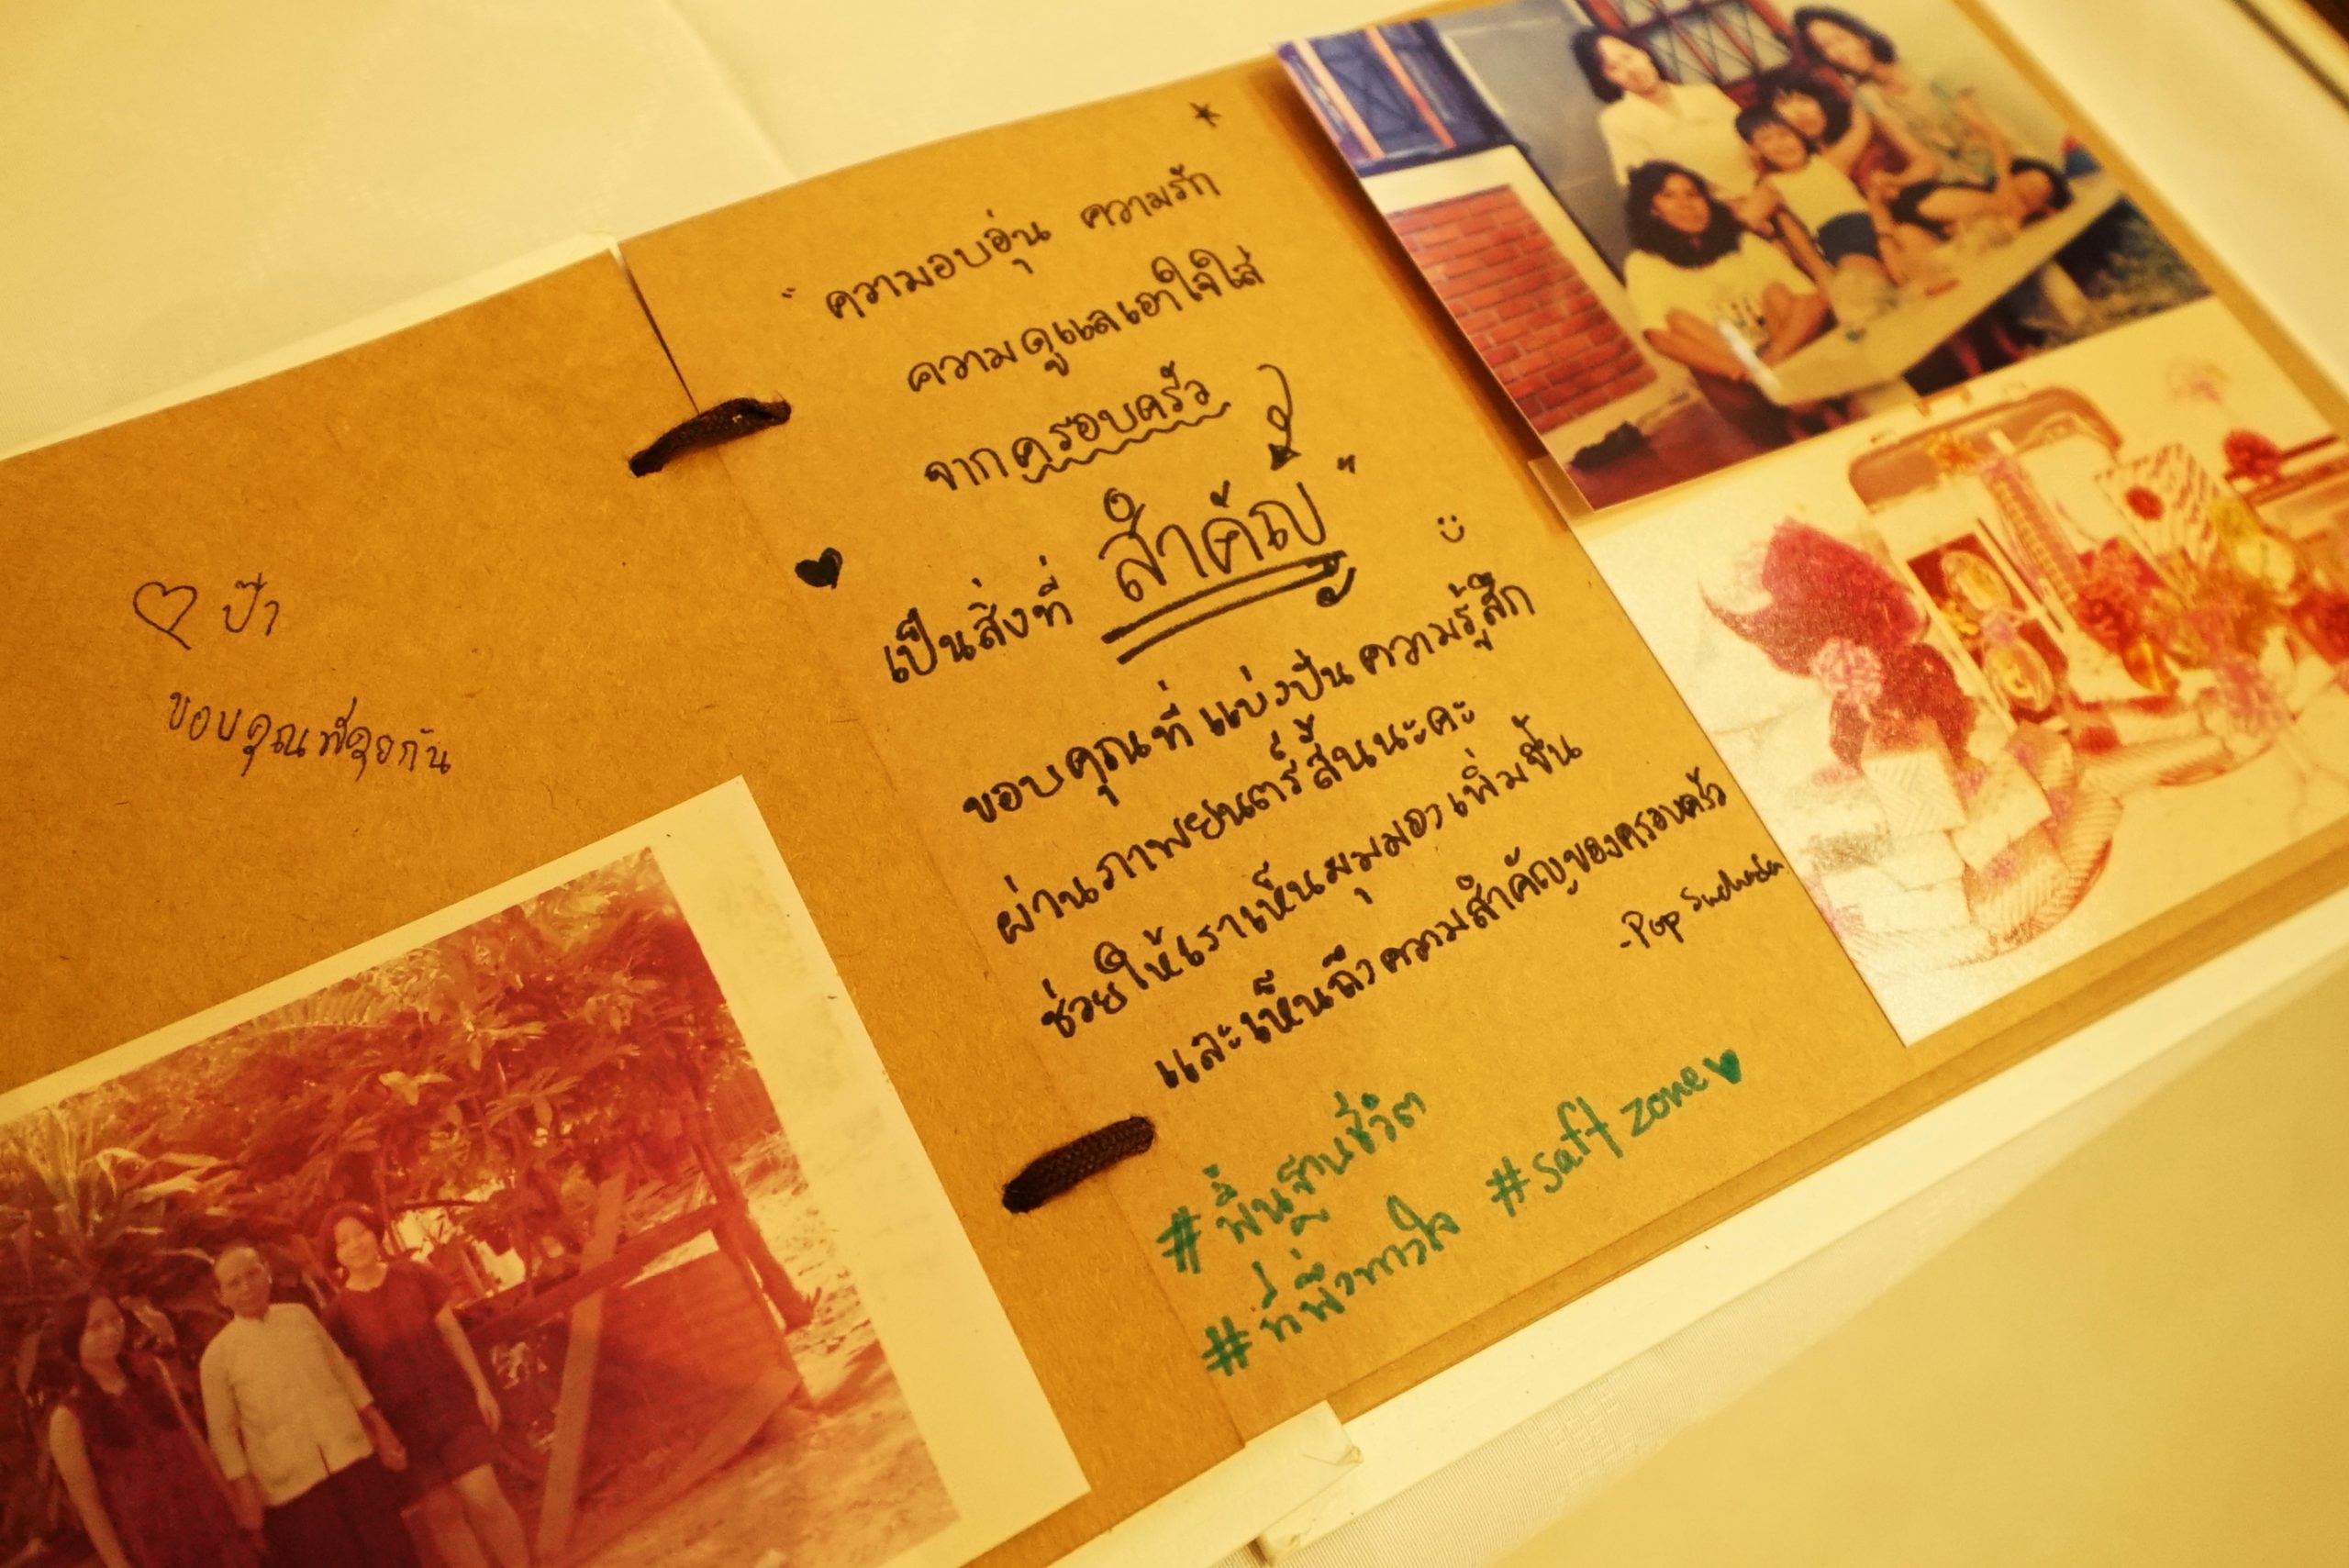 ♡ ป๊า
ขอบคุณที่คุยกัน
"ความอบอุ่น ความรัก
ความดูแลเอาใจใส่
จากครอบครัว
เป็นสิ่งที่ สำคัญ"
ขอบคุณที่แบ่งปันความรู้สึก
ผ่านภาพยนตร์สั้นนะคะ
ช่วยให้เราเห็นมุมมองเพิ่มขึ้น
และเห็นถึงความสำคัญของครอบครัว
-Pop
#พื้นฐานชีวิต
#ที่พึ่งทางใจ #saft zone♥